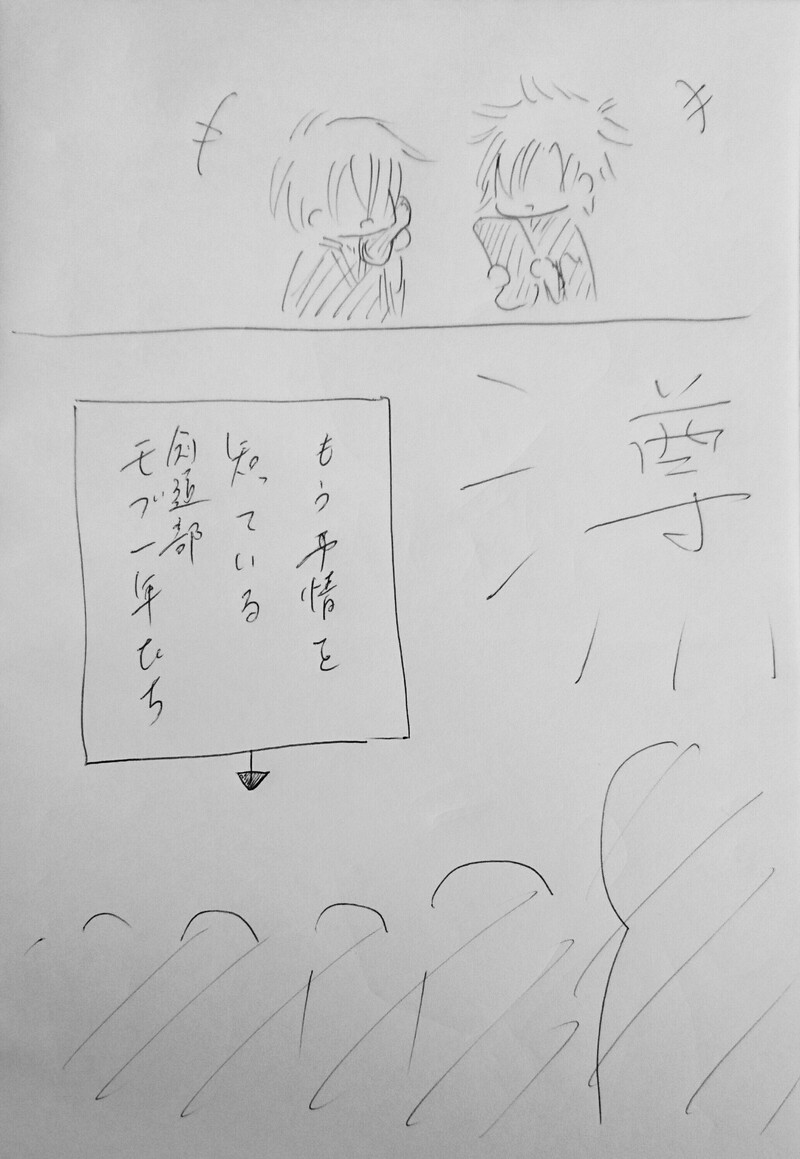 尊
もう事情を
知っている
剣道部
モブ一年たち